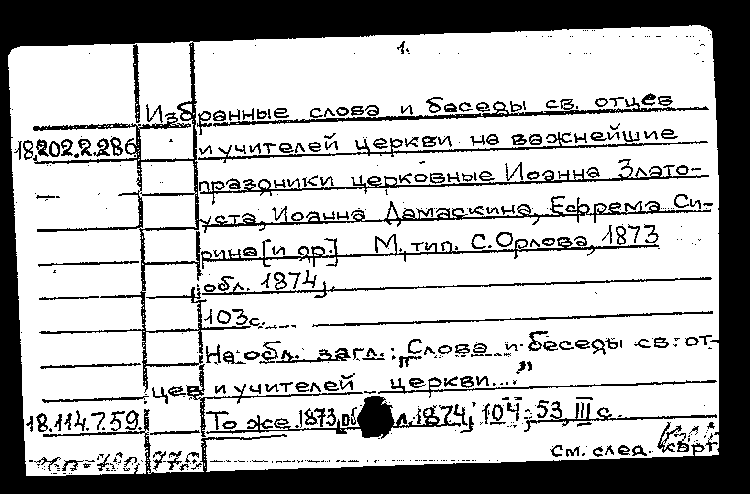 1.
Избранные слова и беседы св. отцев
18.202.2.286 и учителей церкви на важнейшие
праздники церковные Иоанна Злато-
уста, Иоанна Дамаскина, Ефрема Си-
рина [и др.] М., тип. С. Орлова, 1873
[обл. 1874].
103 с.
На обл. загл.: „Слова и беседы св. от-
цев и учителей церкви...”
18.114.7.59. То же 1873, [обл. 1874], 104; 53, III с.
См. след. карт